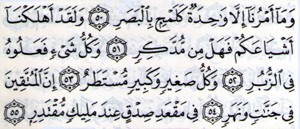 وَمَآ أَمْرُنَآ إِلَّا وَٰحِدَةٌ كَلَمْحٍۭ بِٱلْبَصَرِ ۝٥٠ وَلَقَدْ أَهْلَكْنَآ
أَشْيَاعَكُمْ فَهَلْ مِن مُّدَّكِرٍ ۝٥١ وَكُلُّ شَىْءٍ فَعَلُوهُ
فِى ٱلزُّبُرِ ۝٥٢ وَكُلُّ صَغِيرٍ وَكَبِيرٍ مُّسْتَطَرٌ ۝٥٣ إِنَّ ٱلْمُتَّقِينَ
فِى جَنَّٰتٍ وَنَهَرٍ ۝٥٤ فِى مَقْعَدِ صِدْقٍ عِندَ مَلِيكٍ مُّقْتَدِرٍۭ ۝٥٥